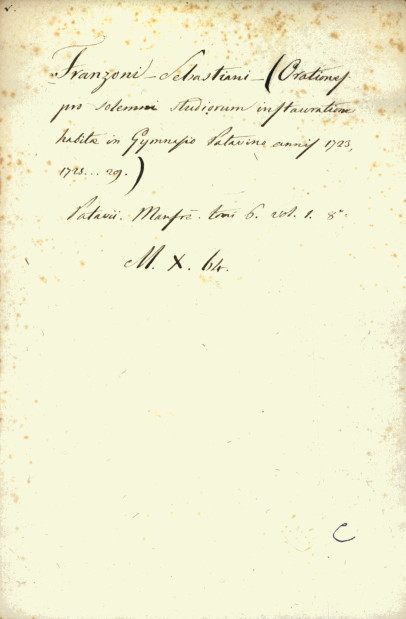 Franzoni - Sebastiani - (Orationes
pro solemni studiorum instauratione
habitæ in Gymnasio Patavino annis 1723,
1725... 29.)
Patavii. Manfrè. tomi 6. vol. 1. 8°
M. X. 64.
C